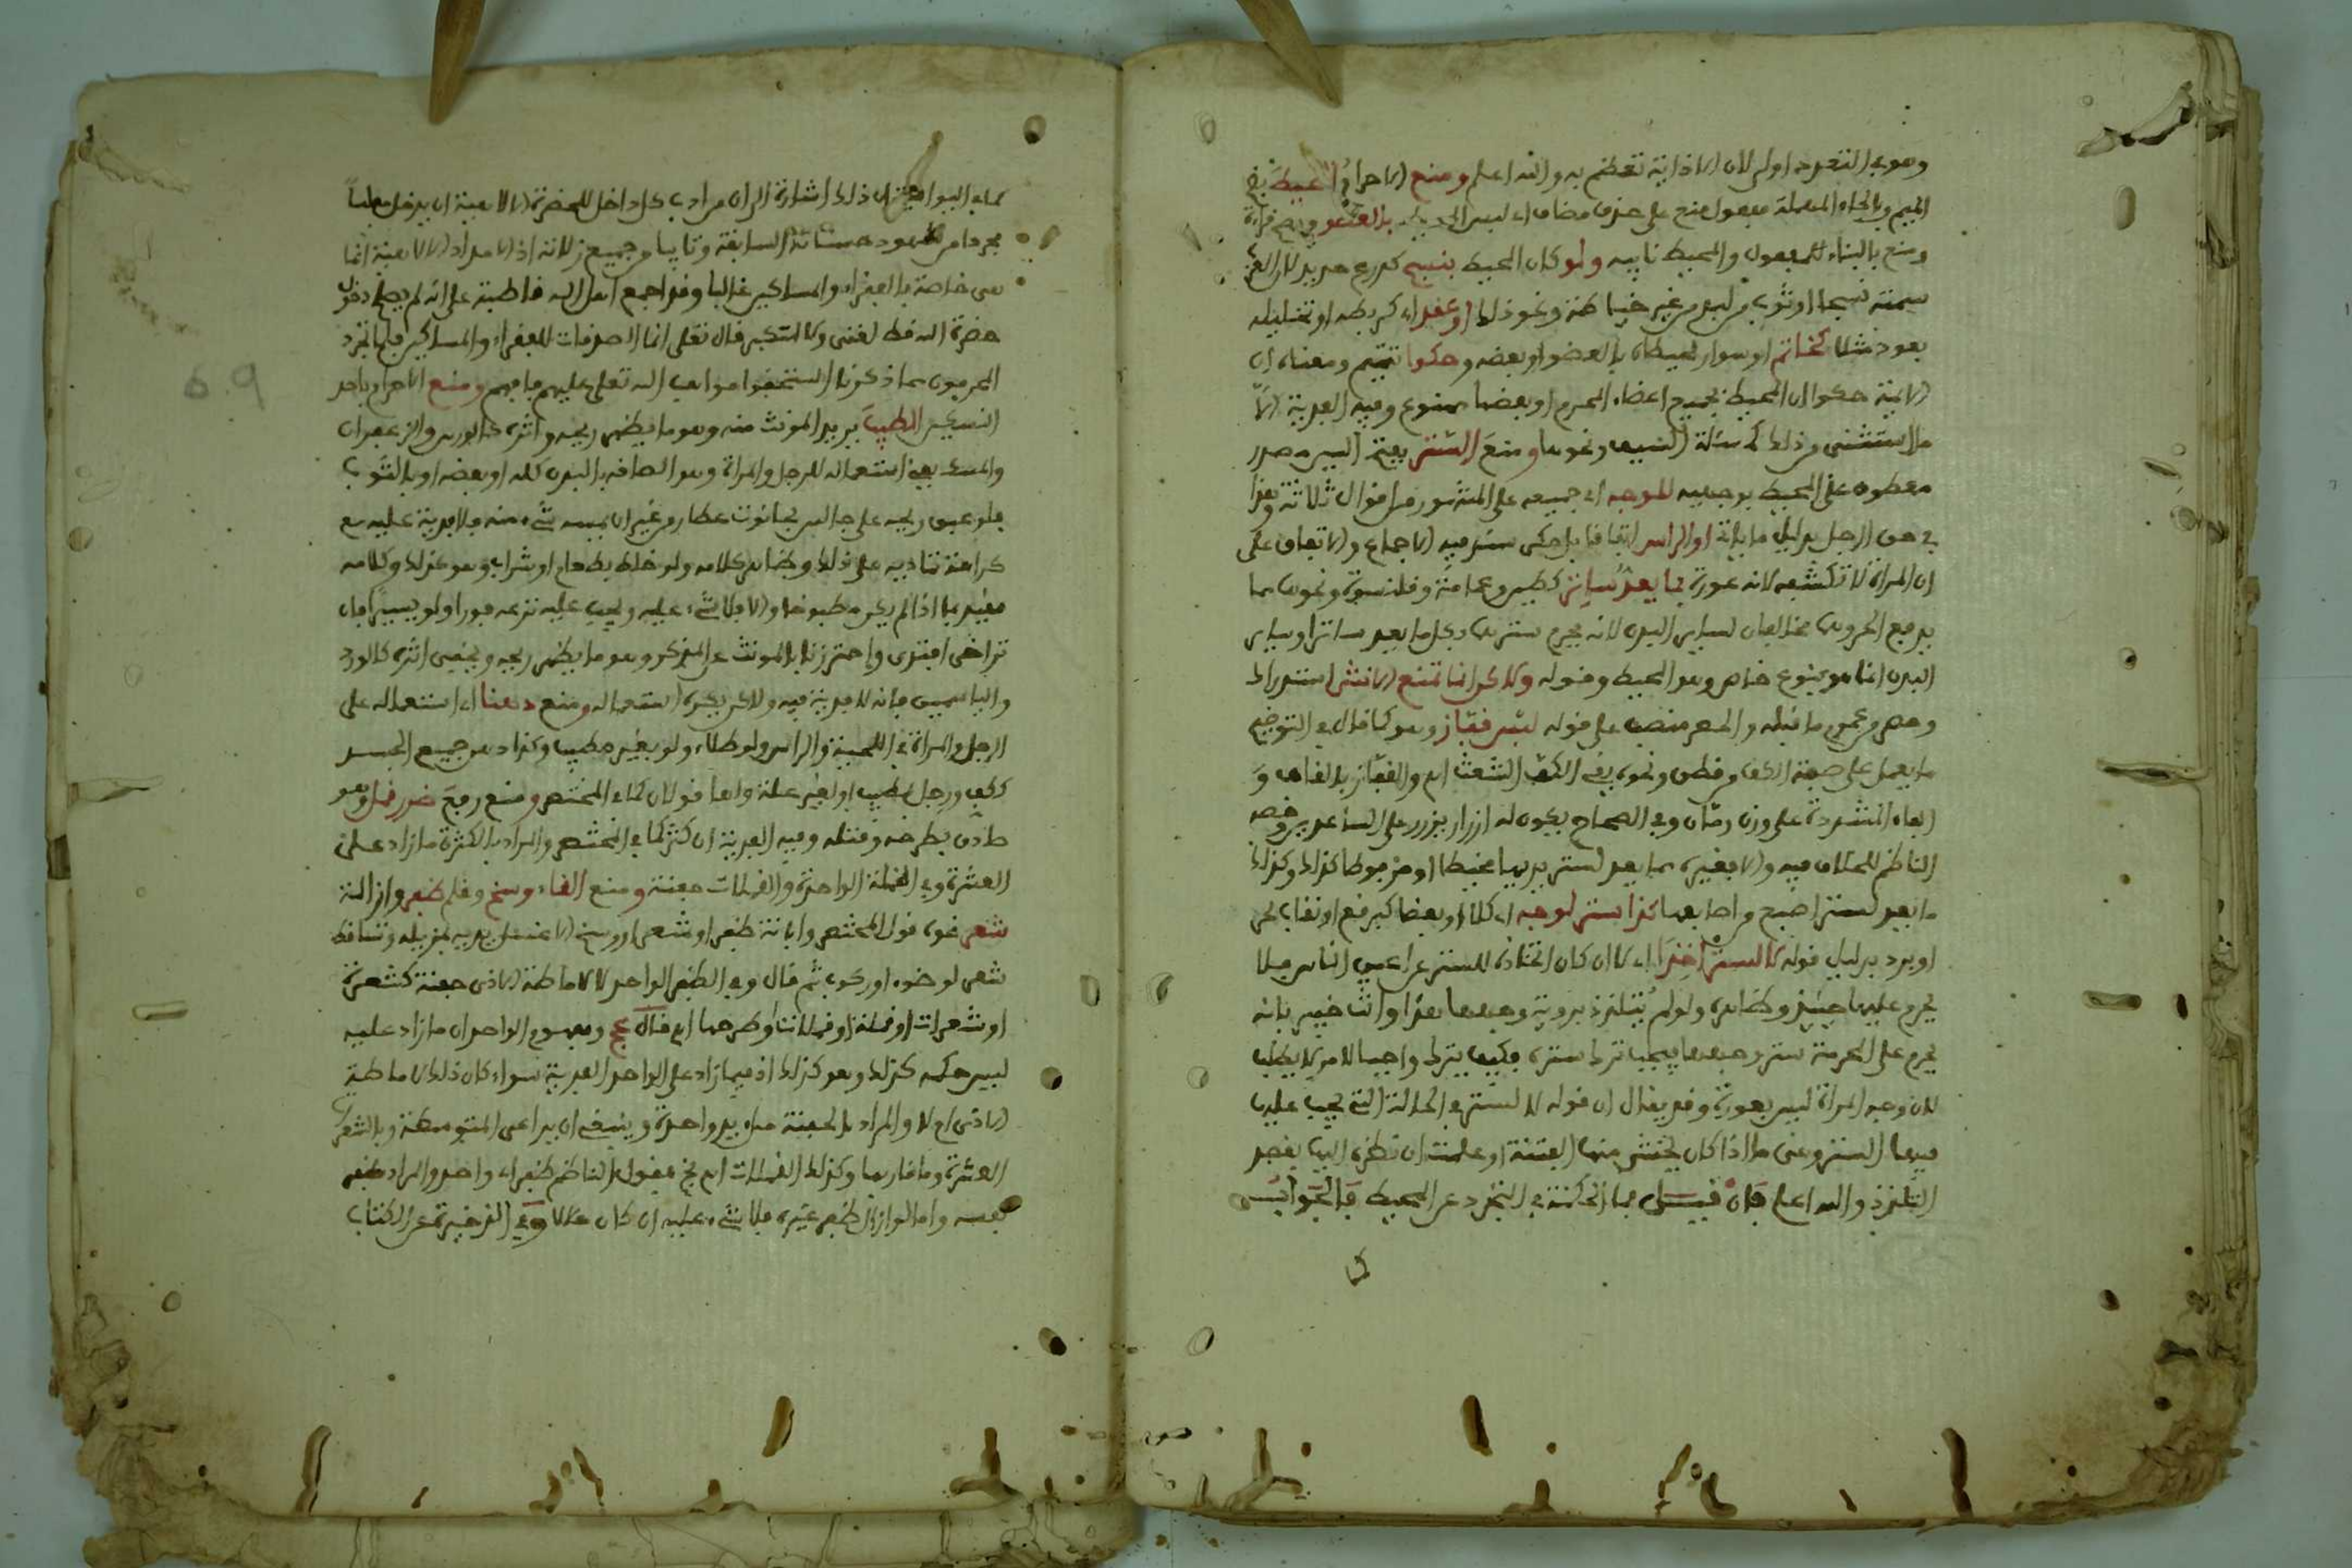 وهو في التعرد اولى لان الاذاية تعظم به والله اعلم ومنع الاحرام المحيط بضم
الميم وبالحاء المهملة مفعول منع على حذف مضاف اي لبس المحيط بالعضو وتصح قراءة
ومنع بالبناء للمفعول والمحيط نايبه ولو كان المحيط بنسج كدرع حديد لان العرب
سمته نسجا او ثوب من لبد من غير خياطة ونحو ذلك او عقد اي كربطه او تخليله
بعود مثلا كخاتم او سوار لحيطان بالعضو او بعضه وحكوا تتميم ومعناه ان
الايمة حكوا ان المحيط بجميع اعضاء المحرم او بعضها ممنوع وفيه الفدية الا
ما استثني من ذلك كمسئلة السيف ونحوها ومنع الستر بفتح السين مصدر
معطوف على المحيط بوجهيه للوجه اي جميعه على المشهور من اقوال ثلاثة وهذا
في حق الرجل بدليل ما ياتي او الراس اتفاقا بل حكى سند فيه الاجماع والاتفاق على
ان المراة لا تكشفه لانه عورة بما يعد ساتر كطين وعمامة وقلنسوة ونحوها مما
يدفع الحر وهما مخالفان لساير البدن لانه يحرم سترهما بكل ما يعد ساترا وساير
البدن انما هو بنوع خاص وهو المحيط وقوله ولكن انما تمنع الانثى استدراك
وهو من عموم ما قبله والحصر منصب على قوله لبس قفاز وهو كما قال في التوضيح
ما يعمل على صفة الكف من قطن ونحوه يقي الكف الشعث اه والقفاز بالقاف و
الفاء المشددة على وزن رمان وفي الصحاح يكون له ازرار يزرر على الساعدين وخصه
الناظم للخلاف فيه والا فغيره مما يعد لستر يديها مخيطا او مربوطا كذلك وكذلك
ما يعد لستر اصبع من اصابعها كذا ستر لوجه اي كلا او بعضا كبرقع او نقاب لحر
او برد بدليل قوله لا لستر اخذا اي لا ان كان اتخاذه للستر عن اعين الناس فلا
يحرم عليها حينئذ وظاهره ولو لم يتلذذ بروية وجهها هذا وانت خبير بانه
يحرم على المحرمة ستر وجهها فيجب ترك ستره فكيف يترك واجبا لامر لا يطلب
لان وجه المراة ليس بعورة وقد يقال ان قوله لا لستر في الحالة التي يجب عليها
فيها الستر وعنى ما اذا كان يخشى منها الفتنة او علمت ان نظره اليها بقصد
التلذذ والله اعلم فان قيل ما الحكمة في التجرد عن المحيط فالجواب
كما
كما في البواقيت ان ذلك اشارة الى ان من ادب كل داخل للحضرة الالاهية ان يدخل مفلسا
مجردا من شهود حسناته السابقة وتايبا من جميع زلاته اذ الامداد الالاهية انما
هي خاصة بالفقراء والمساكين غالبا وقد اجمع اهل الله قاطبة على انه لم يصح دخول
حضرة الله قط لغني ولا متكبر قال تعلى انما الصدقات للفقراء والمساكين فلما تجرد
المحرمون مما ذكرنا استحقوا مواهب الله تعلى عليهم ما فيهم ومنع الاحرام باحد
النسكين الطيب يريد المونث منه وهو ما يظهر ريحه واثره كالورس والزعفران
والمسك يعني استعماله للرجل والمراة وهو الصافه بالبدن كله او بعضه او بالثوب
فلو عبق ريحه على جالس بحانوت عطار من غير ان يمسه شيء منه فلا فدية عليه مع
كراهة تماديه على ذلك وظاهر كلامه ولو خلط بطعام او شراب وهو كذلك وكلامه
مقيد بما اذا لم يكن مطبوخا والا فلا شيء عليه ويجب عليه نزعه فورا ولو يسيرا فان
تراخى افتدى واحترزنا بالمونث عن المذكر وهو ما يظهر ريحه ويخفى اثره كالورد
والياسمين فانه لا فدية فيه ولاكن يكره استعماله ومنع دهنا اي استعماله على
الرجل والمراة في اللحية والراس ولو طلاء ولو بغير مطيب وكذا دهن جميع الجسد
ككف ورجل بمطيب او لغير علة ولها قولان كما في المختصر ومنع رفع ضرر قمل وهو
صادق بطرحه وقتله وفيه الفدية ان كثر كما في المختصر والمراد بالكثرة ما زاد على
العشرة وفي القملة الواحدة والقملات حفنة ومنع القاء وسخ وقلم ظفر وازالة
شعر نحوه قول المختصر وابانة ظفر او شعر او وسخ الا غسل يديه بمزيله وتساقط
شعر لوضوء او ركوب ثم قال وفي الظفر الواحد لا لاماطة الاذى حفنة كشعرة
او شعرات او قملة او قملات وطرحها اه قال عج ومفهوم الواحد ان ما زاد عليه
ليس حكمه كذلك وهو كذلك اذ فيما زاد على الواحد الفدية سواء كان ذلك لاماطة
الاذى ام لا والمراد بالحفنة ملء يد واحدة وينبغي ان يراعى المتوسطة وبالشعر
العشرة وما قاربها وكذلك القملات اه نخ فقول الناظم ظفر اي واحد والمراد ظفر
نفسه واما لو ازال ظفر غيره فلا شيء عليه ان كان حلالا وفي الذخيرة عن الكتاب
6.9